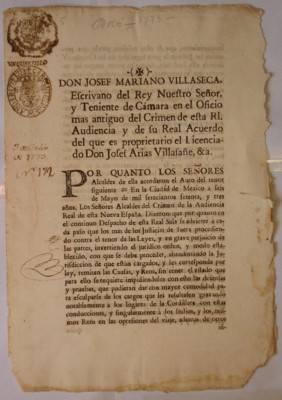 DON JOSEF MARIANO VILLASECA,
Escrivano del Rey Nuestro Señor,
y Teniente de Cámara en el Oficio
mas antiguo del Crimen de esta Rl.
Audiencia y de su Real Acuerdo
del que es proprietario el Licencia-
do Don Josef Arias Villafañe, &a.
POR QUANTO LOS SEÑORES
Alcaldes de esta acordaron el Auto del tenor
siguiente = En la Ciudad de Mexico a seis
de Mayo de mil setecientos setenta, y tres
años, Los Señores Alcaldes del Crimen de la Audiencia
Real de esta Nueva España. Dixeron que por quanto en
el continuo Despacho de esta Real Sala se advierte a ca-
da paso que los mas de los Justicias de fuera procedien-
do contra el tenor de las Leyes, y en grave perjuicio de
las partes, invertiendo el juridico orden, y modo esta-
blecido, con que se debe proceder, abandonando la Ju-
risdiccion de que estan cargados, y les corresponde por
ley, remiten las Causas, y Reos, sin tener el estado que
para ello se requiere impidiendoles con esto las defensas
y pruebas, que pudieran dar con mayor comodidad pa-
ra exculparse de los cargos que les resultan gravando
notablemente a los lugares de la Cordillera con estas
conducciones, y singularmente a los Indios, y los mis-
mos Reos en las opresiones del viaje, ademas de otros